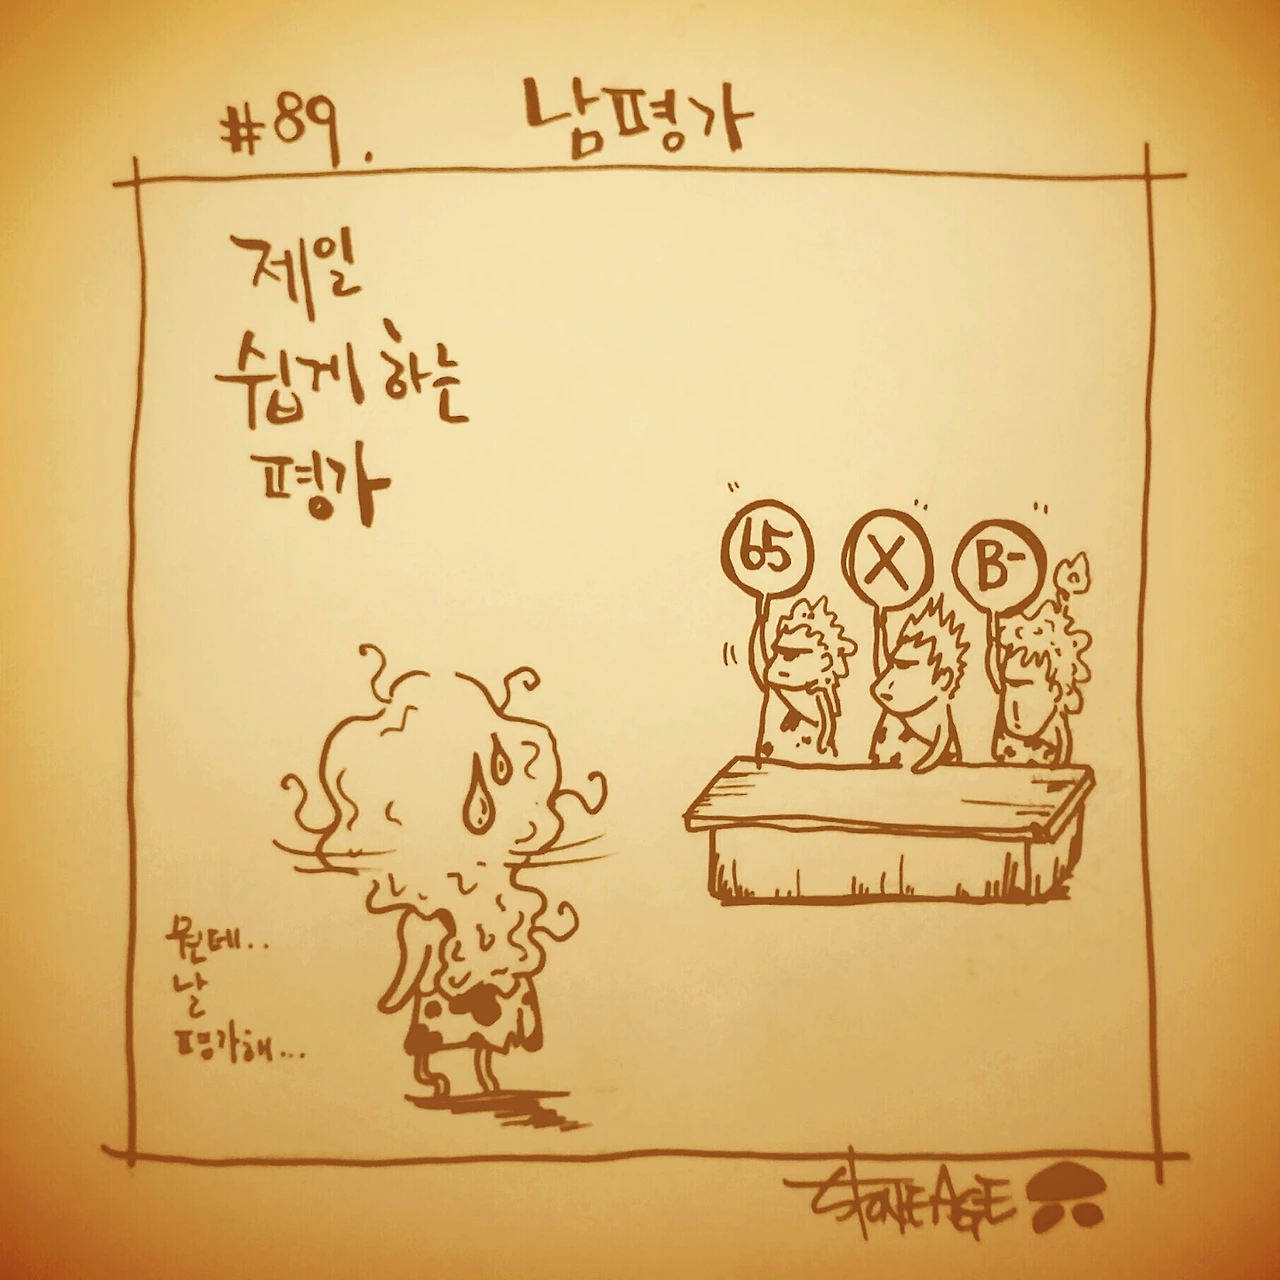 #89. 남평가
제일
쉽게 하는
평가
65 X B-
뭔데..
날
평가해...
STONE AGE